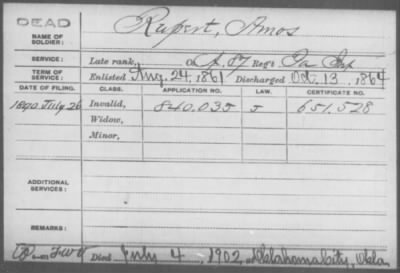 DEAD
NAME OF SOLDIER: Rupert, Amos
SERVICE: Late rank, Regt Pa Inf
TERM OF SERVICE: Enlisted Aug. 24, 1861 Discharged Oct. 13, 1864
DATE OF FILING. CLASS. APPLICATION NO. LAW. CERTIFICATE NO.
1890 July 26 Invalid, 840.035 J 651.528
Widow,
Minor,
ADDITIONAL SERVICES:
REMARKS:
Died July 4, 1902, Oklahoma City, Okla